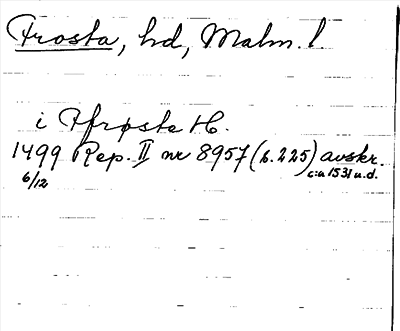 Frosta, hd, Malm. l.
i Ffrøste H.
1499 Rep. II nr 8957 (s. 225) avskr.
6/12 c:a 1531 u.d.